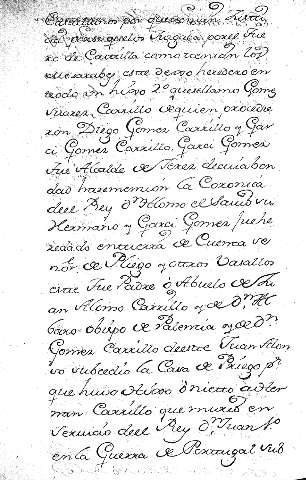 Castellanos por que
de que los Juzgaba por el Fue
ro de Castilla como tenian los
Mozarabes este Diego heredero en
todo un hijo 2º que se llamo Gome
Suarez Carrillo de quien procedie
ron Diego Gomez Carrillo y Gar
ci Gomez Carrillo, Garci Gomez
fue Alcalde de Jerez de cuia bon
dad hace mencion la Coronica
de el Rey Dn Alonso el Savio su
Hermano y Garci Gomez fue he
redado en tierra de Cuenca Se
ñor de Priego y otros Vasallos
este fue Padre ó Abuelo de Ju
an Alonso Carrillo y de Dn Al
baro obispo de Palencia y de Dn
Gomez Carrillo de este Juan Alon
so subcedio la Casa de Priego pr
que huvo Hijo ó nieto a Her
nan Carrillo que murió en
servicio de el Rey Dn Juan 1º
en la Guerra de Portugal sub